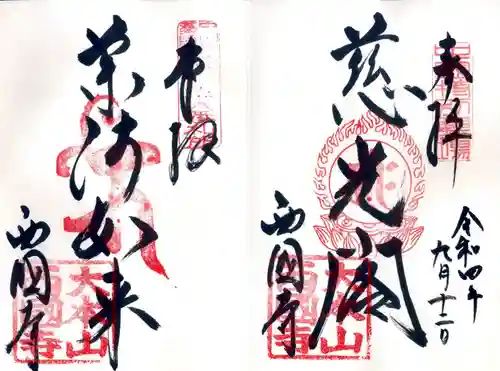 奉拝
令和四年
九月十二日
慈光閣
西國寺
大本山
西國寺
奉拝
薬師如来
西國寺
大本山
西國寺